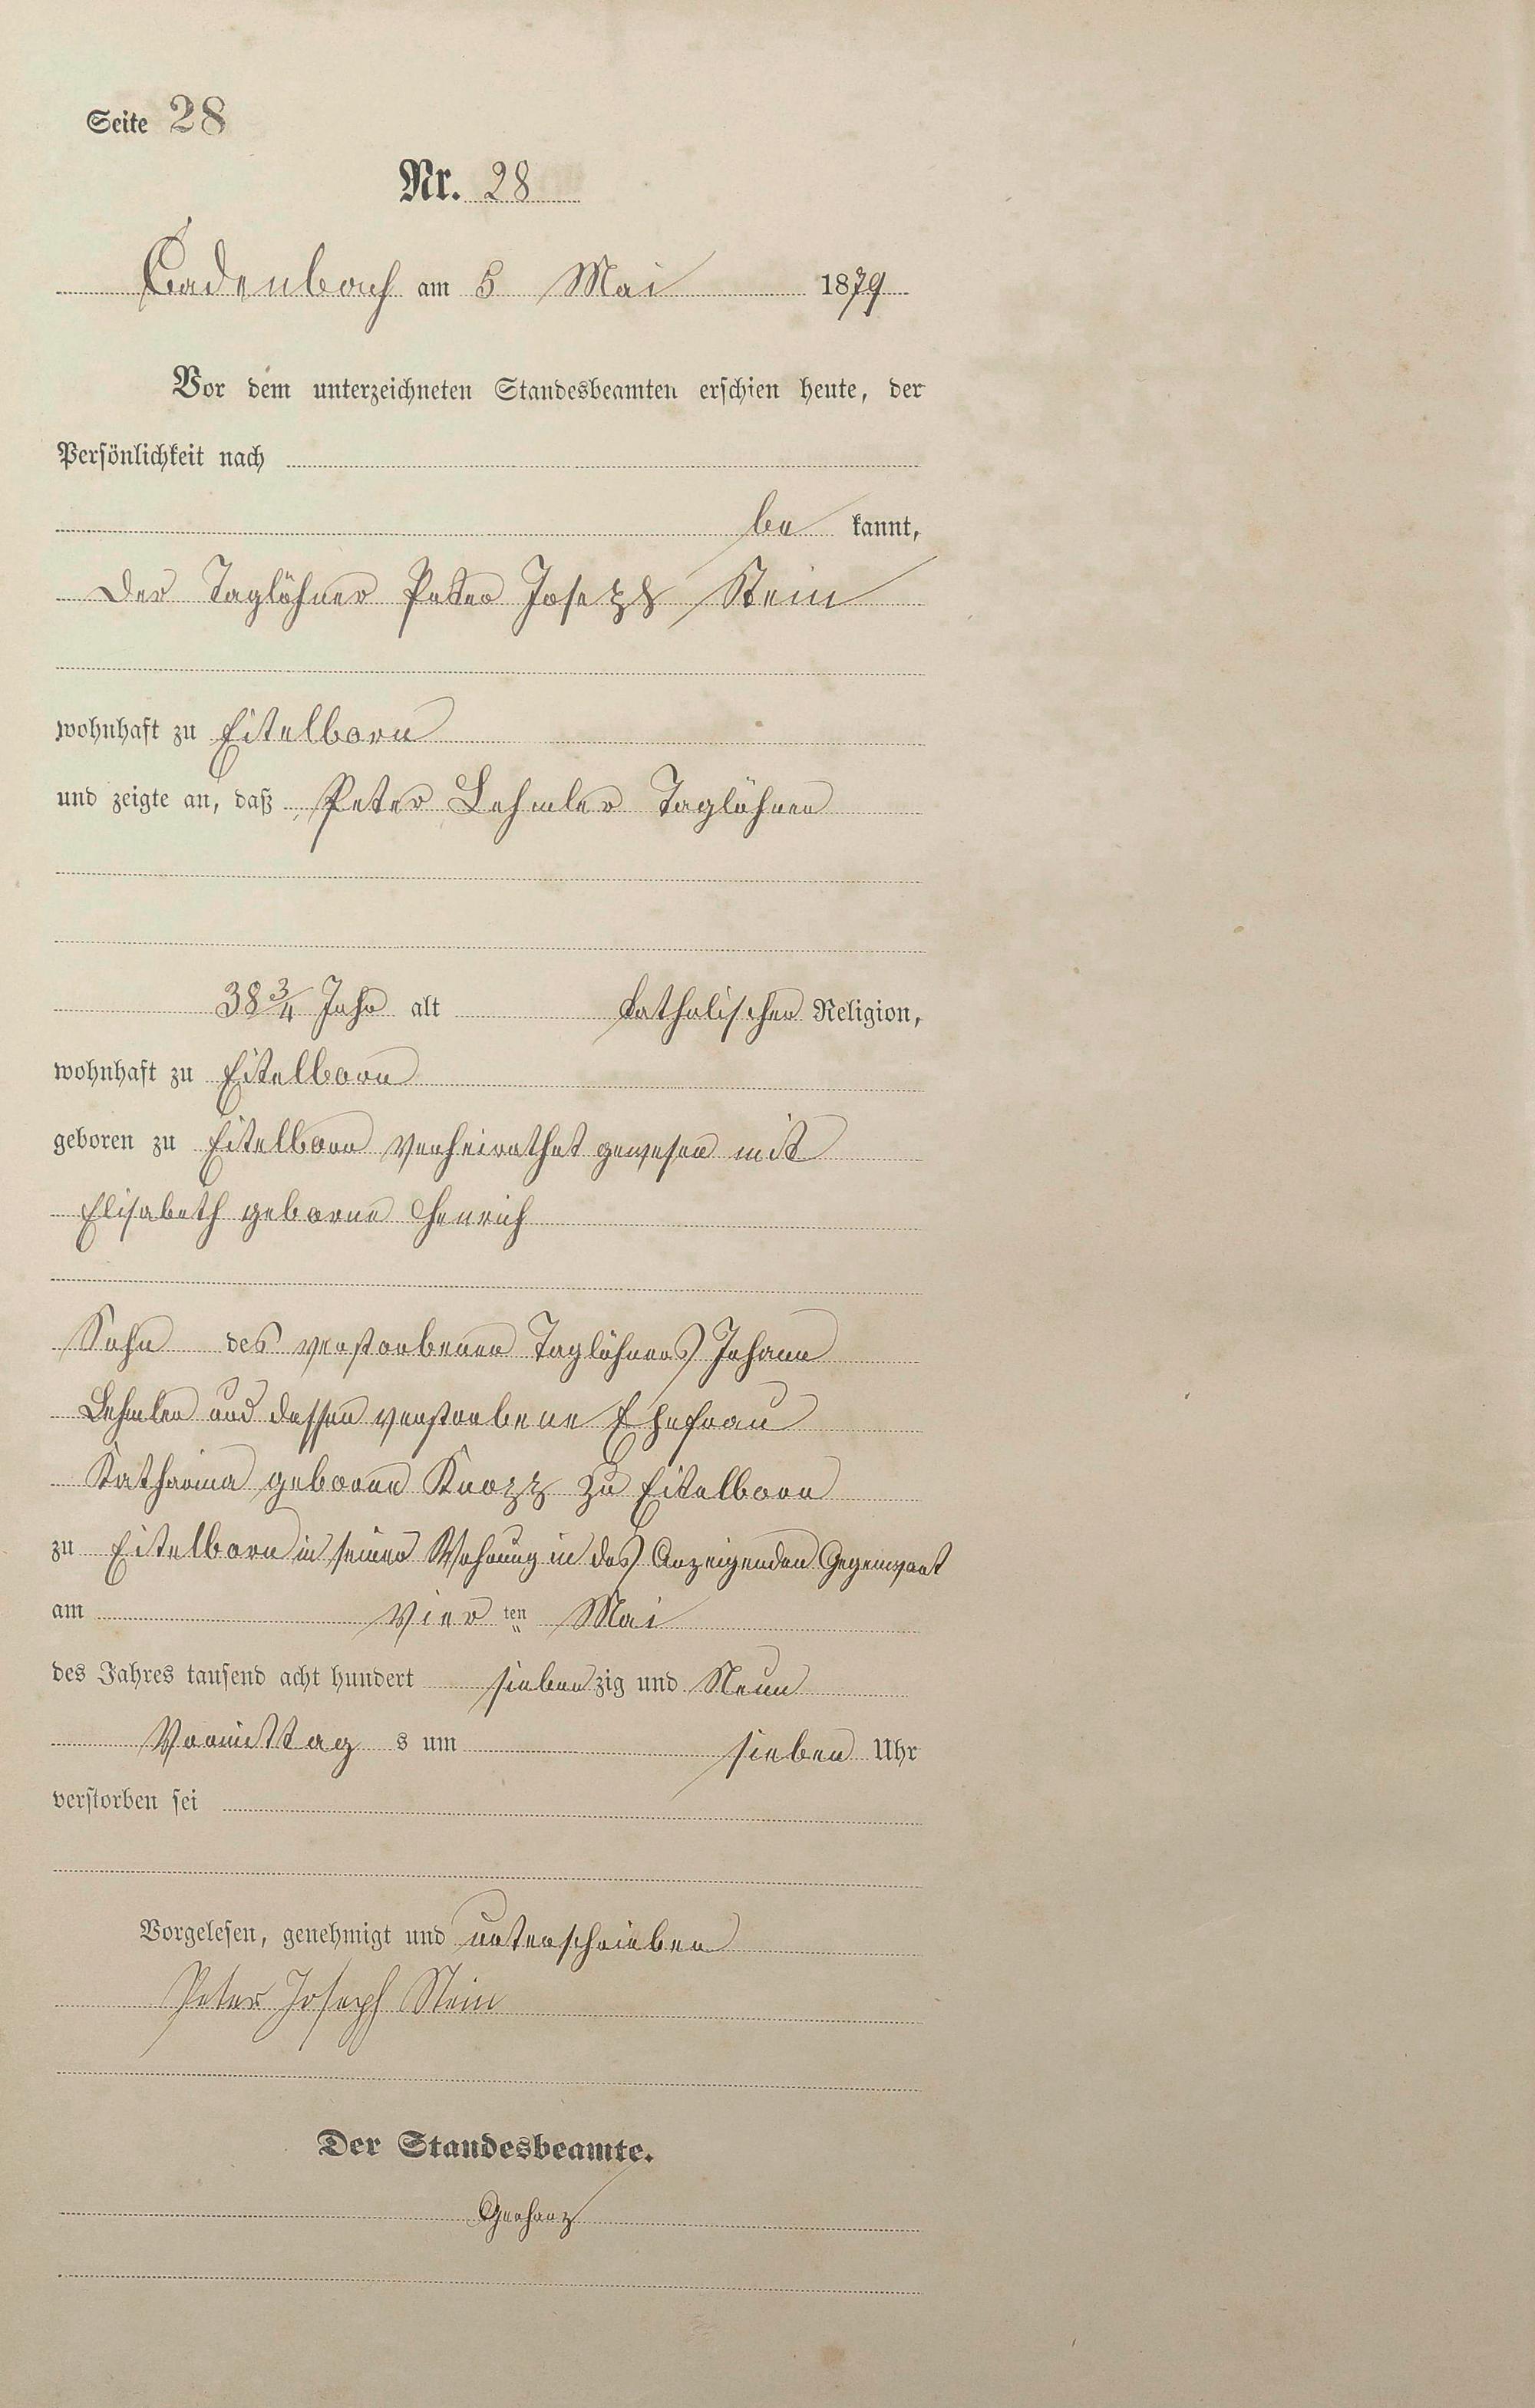 Seite 28
Nr. 28
Cadenbach am 5 Mai 1879
Vor dem unterzeichneten Standesbeamten erschien heute, der
Persönlichkeit nach
be kannt,
der Taglöhner Peter Joseph Stein
wohnhaft zu Eitelborn
und zeigte an, daß Peter Lehmler Taglöhner
38 3/4 Jahr alt katholischer Religion,
wohnhaft zu Eitelborn
geboren zu Eitelborn verheirathet gewesen mit
Elisabeth geborne Henrich
Sohn des verstorbenen Taglöhners Johann
Lehmler und dessen verstorbene Ehefrau
Katharina geborne Knopp zu Eitelborn
zu Eitelborn in seiner Wohnung in des Anzeigenden Gegenwart
am vier ten Mai
des Jahres tausend acht hundert siebenzig und Neun
Vormittag s um sieben Uhr
verstorben sei
Vorgelesen, genehmigt und unterschrieben
Peter Joseph Stein
Der Standesbeamte.
Gerharz